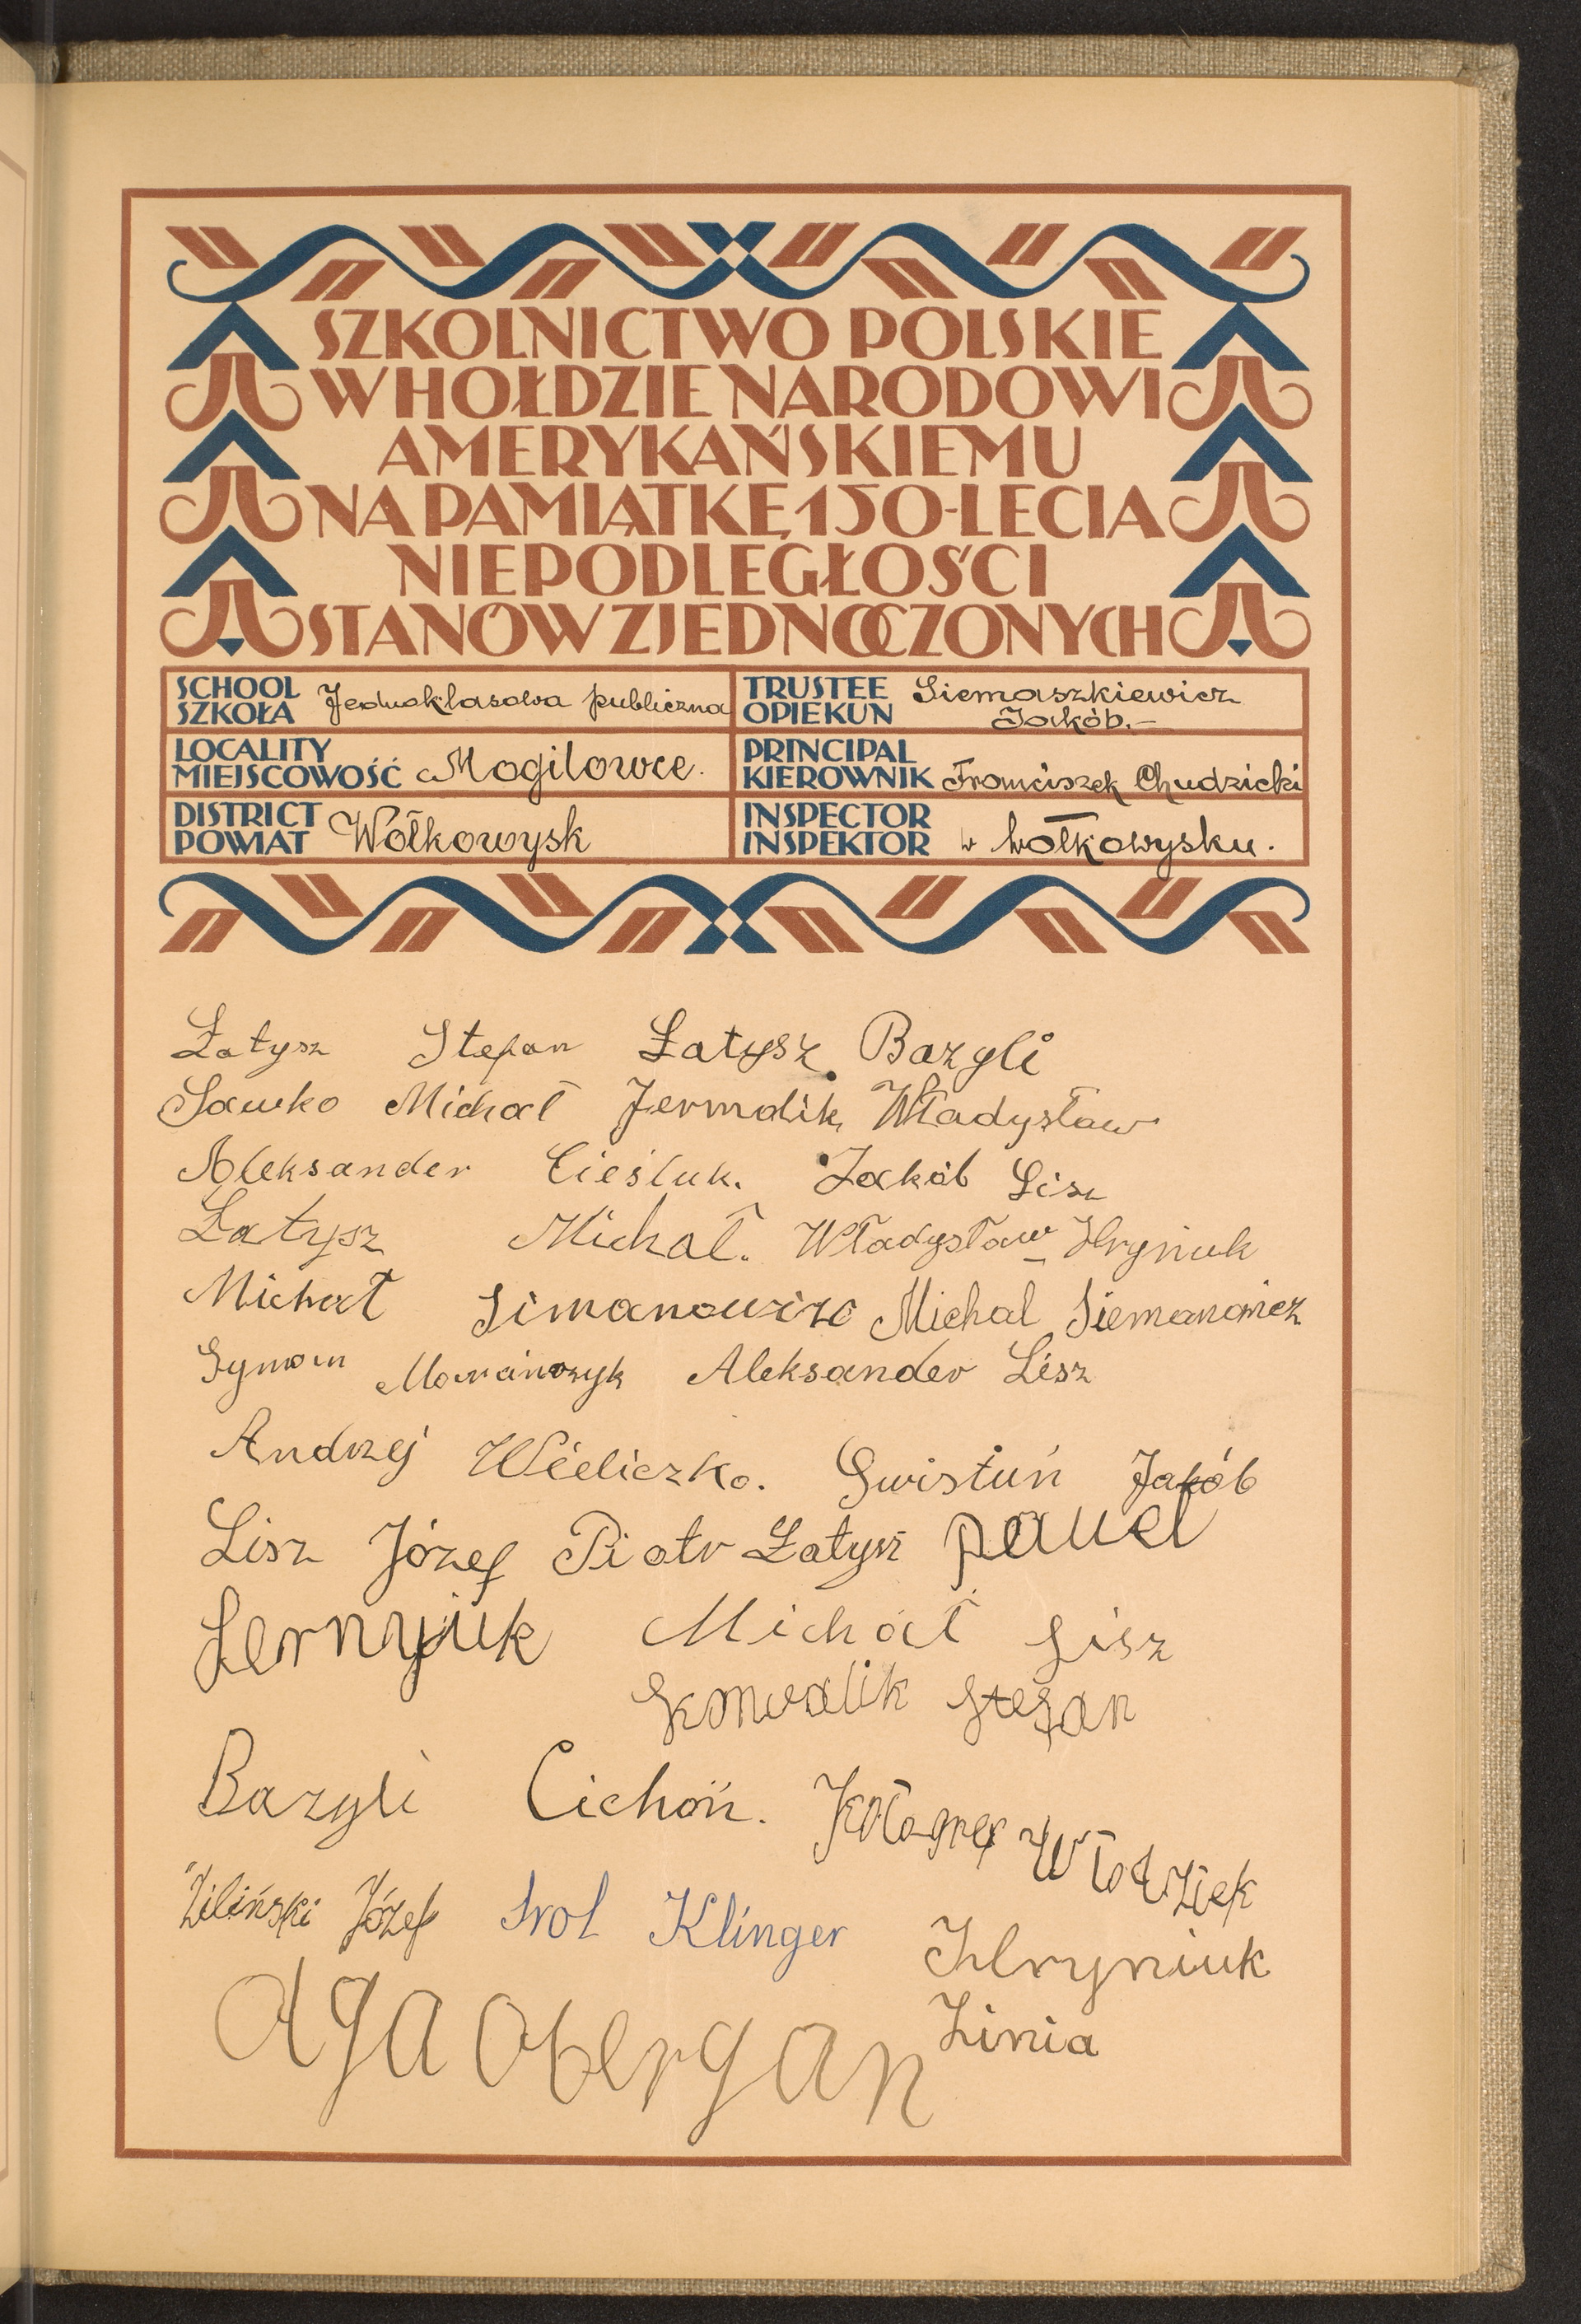 SZKOLNICTWO POLSKIE
W HOŁDZIE NARODOWI
AMERYKAŃSKIEMU
NA PAMIĄTKĘ 150-LECIA
NIEPODLEGŁOŚCI
STANÓW ZJEDNOCZONYCH
SCHOOL SZKOŁA Jednoklasowa publiczna
TRUSTEE OPIEKUN Siemaszkiewicz Jakób.-
LOCALITY MIEJSCOWOŚĆ Mogilowce.
PRINCIPAL KIEROWNIK Franciszek Chudzicki
DISTRICT POWIAT Wołkowysk
INSPECTOR INSPEKTOR w Wołkowysku.
Łatysz Stefan Łatysz Bazyli
Sawko Michał Jermolik Władysław
Aleksander Cieśluk. Jakób Lisz
Łatysz Michał. Władysław Hryniuk
Michał Simanowicz Michal Siemanowicz
Symon Aleksander Lisz
Andrzej Wieliczko. Swistuń Jakób
Lisz Józef Piotr Łatysz paweł
Michał Lisz
Stefan
Bazyli Cichoń.
Żiliński Józef Srol Klinger
Hryniuk
Zinia